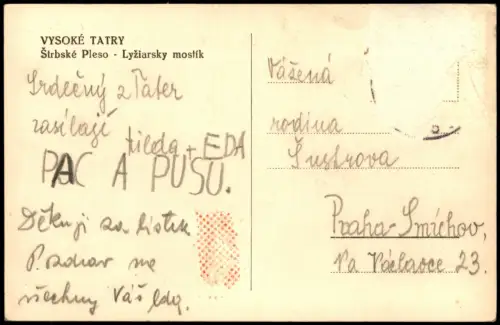 VYSOKÉ TATRY
Štrbské Pleso - Lyžiarsky mostík
Srdečný z Tater
zasílají
Hilda + EDA
PAC A PUSU.
Děkuji za lístek
Pozdrav na
všechny Váš Eda.
Vážená
rodina
Šustrova
Praha-Smíchov,
Na Václavce 23.